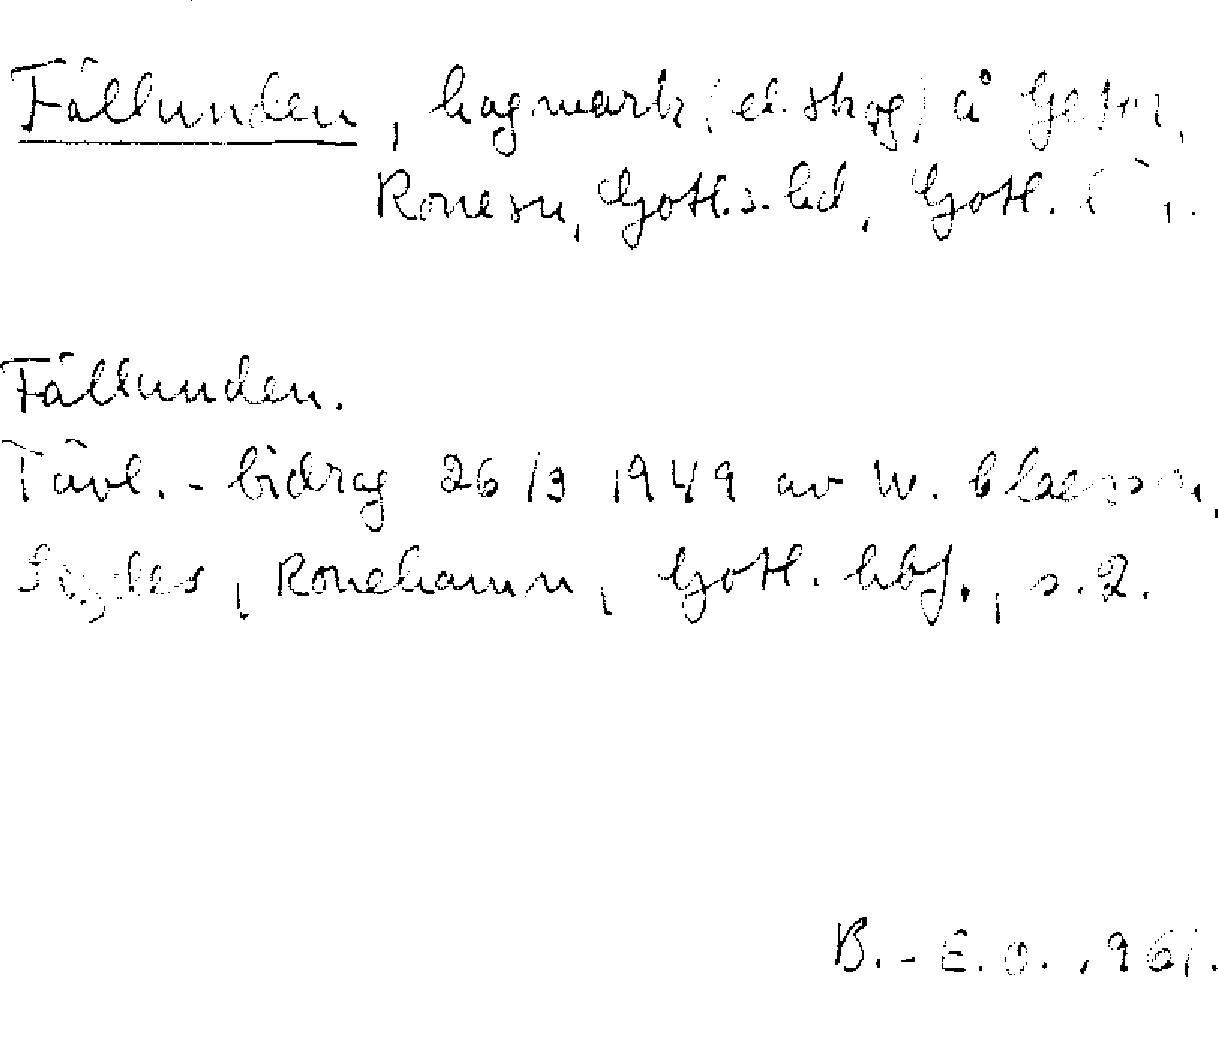 Fällunden, hagmark (el. skog) å
Ronesn, Gotl.s. hd, Gotl. l.
Fällunden.
Tävl.-bidrag 26/3 1949 av W. Claesson,
Ronehamn, Gotl. hbf., s. 2.
B.-E. O. 1961.